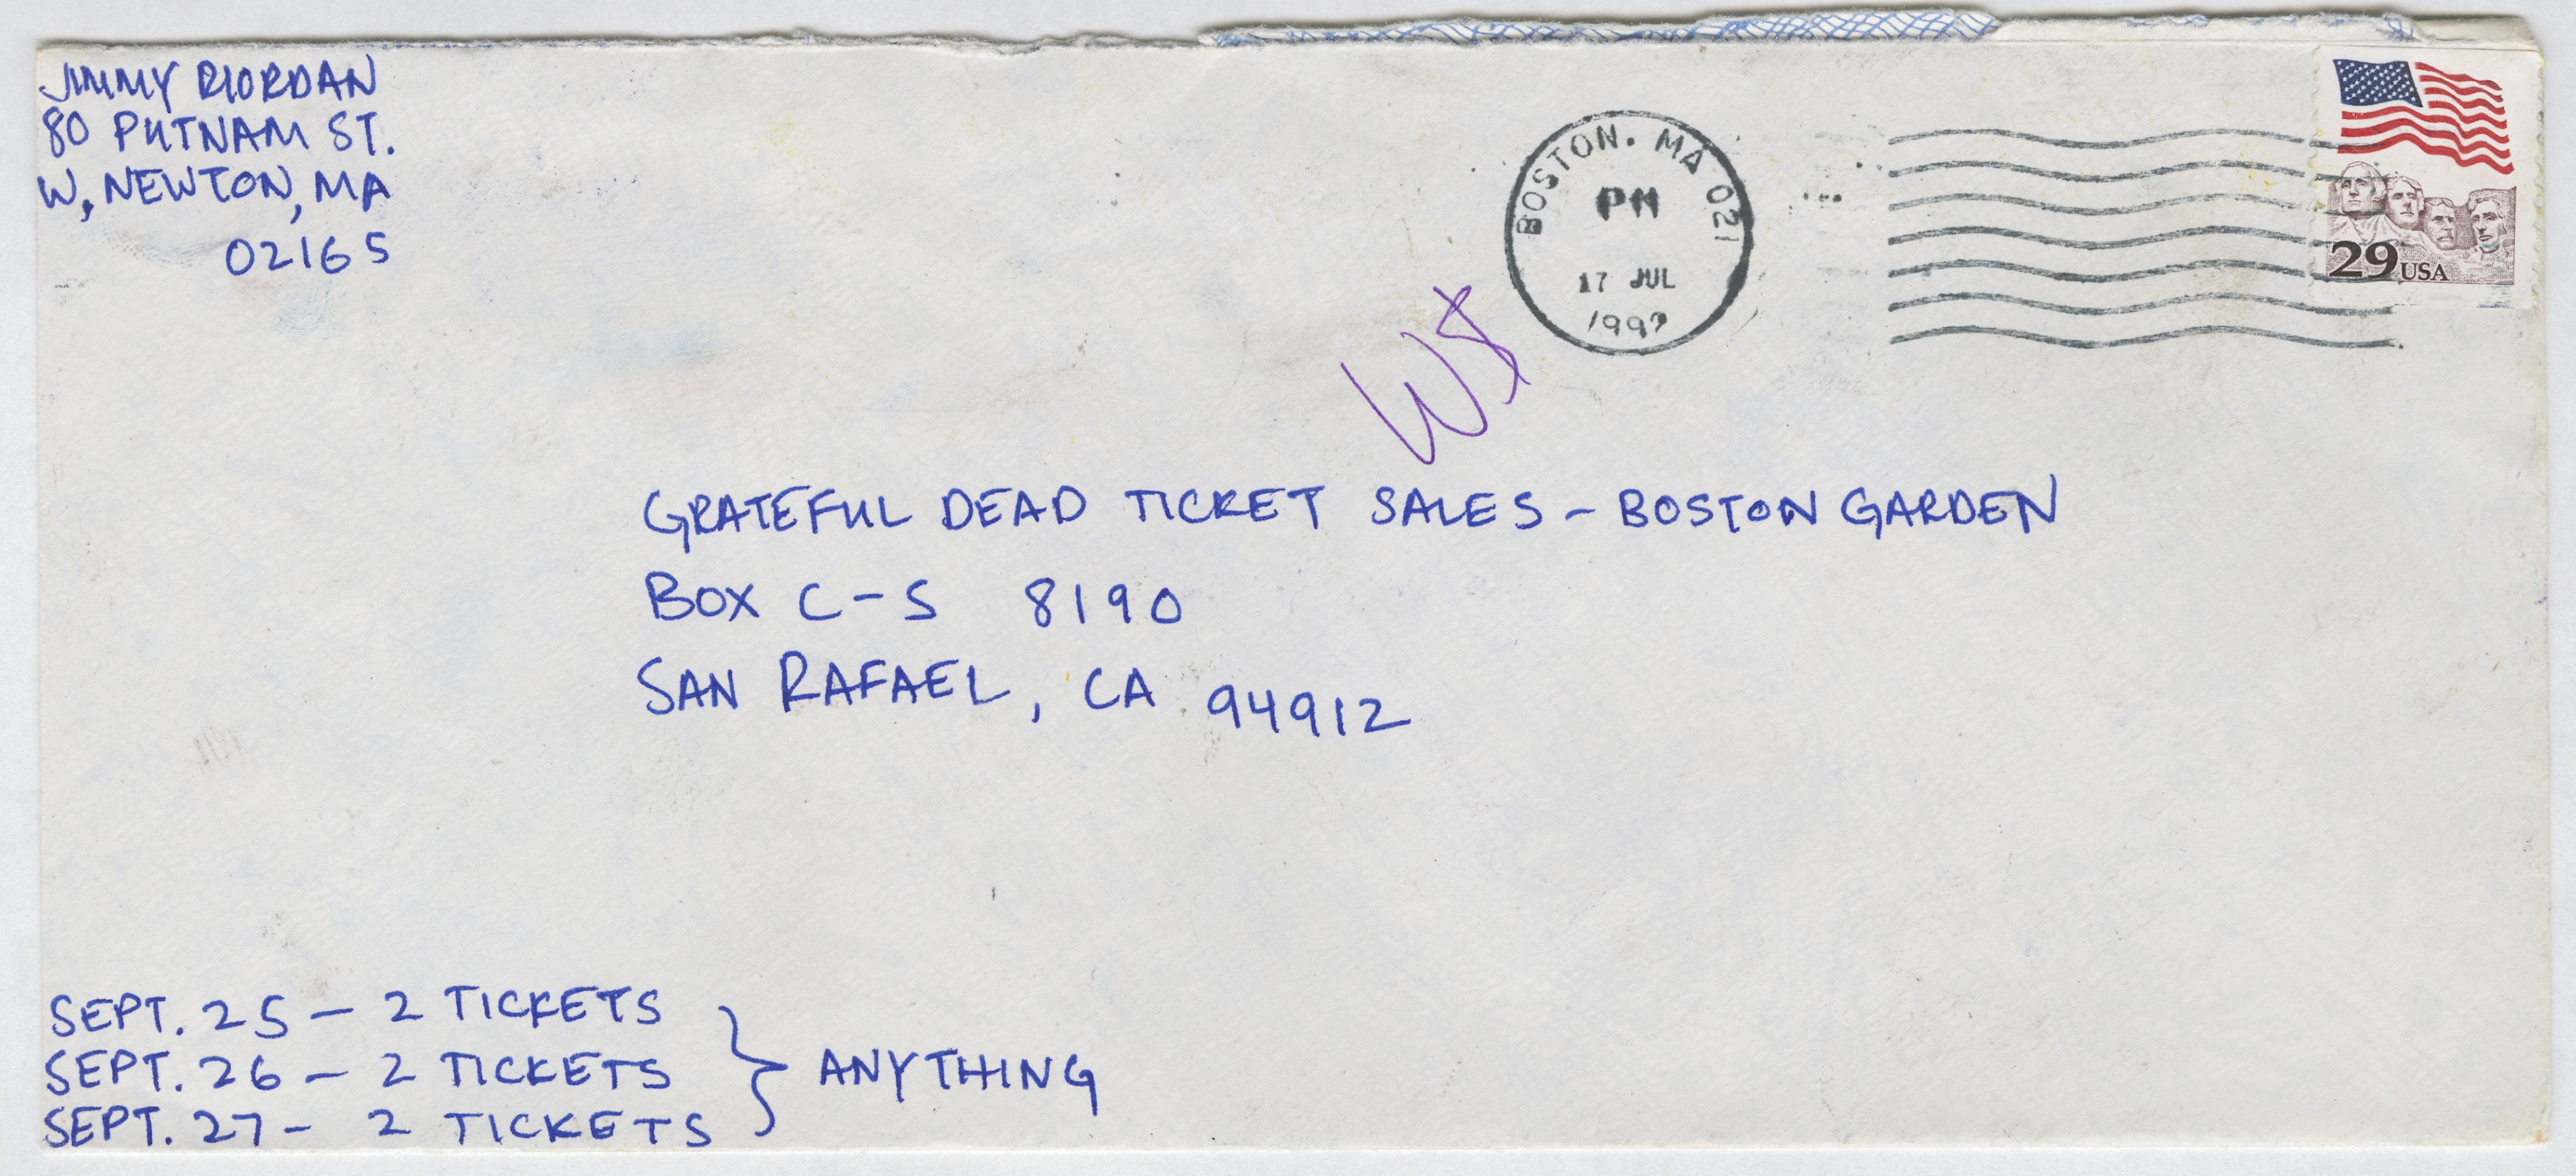 JIMMY RIORDAN
80 PUTNAM ST.
W. NEWTON, MA
02165
BOSTON. MA 021
PM
17 JUL
199
29 USA
GRATEFUL DEAD TICKET SALES - BOSTON GARDEN
BOX C-S 8190
SAN RAFAEL, CA 94912
SEPT. 25 - 2 TICKETS
SEPT. 26 - 2 TICKETS
SEPT. 27 - 2 TICKETS
ANYTHING